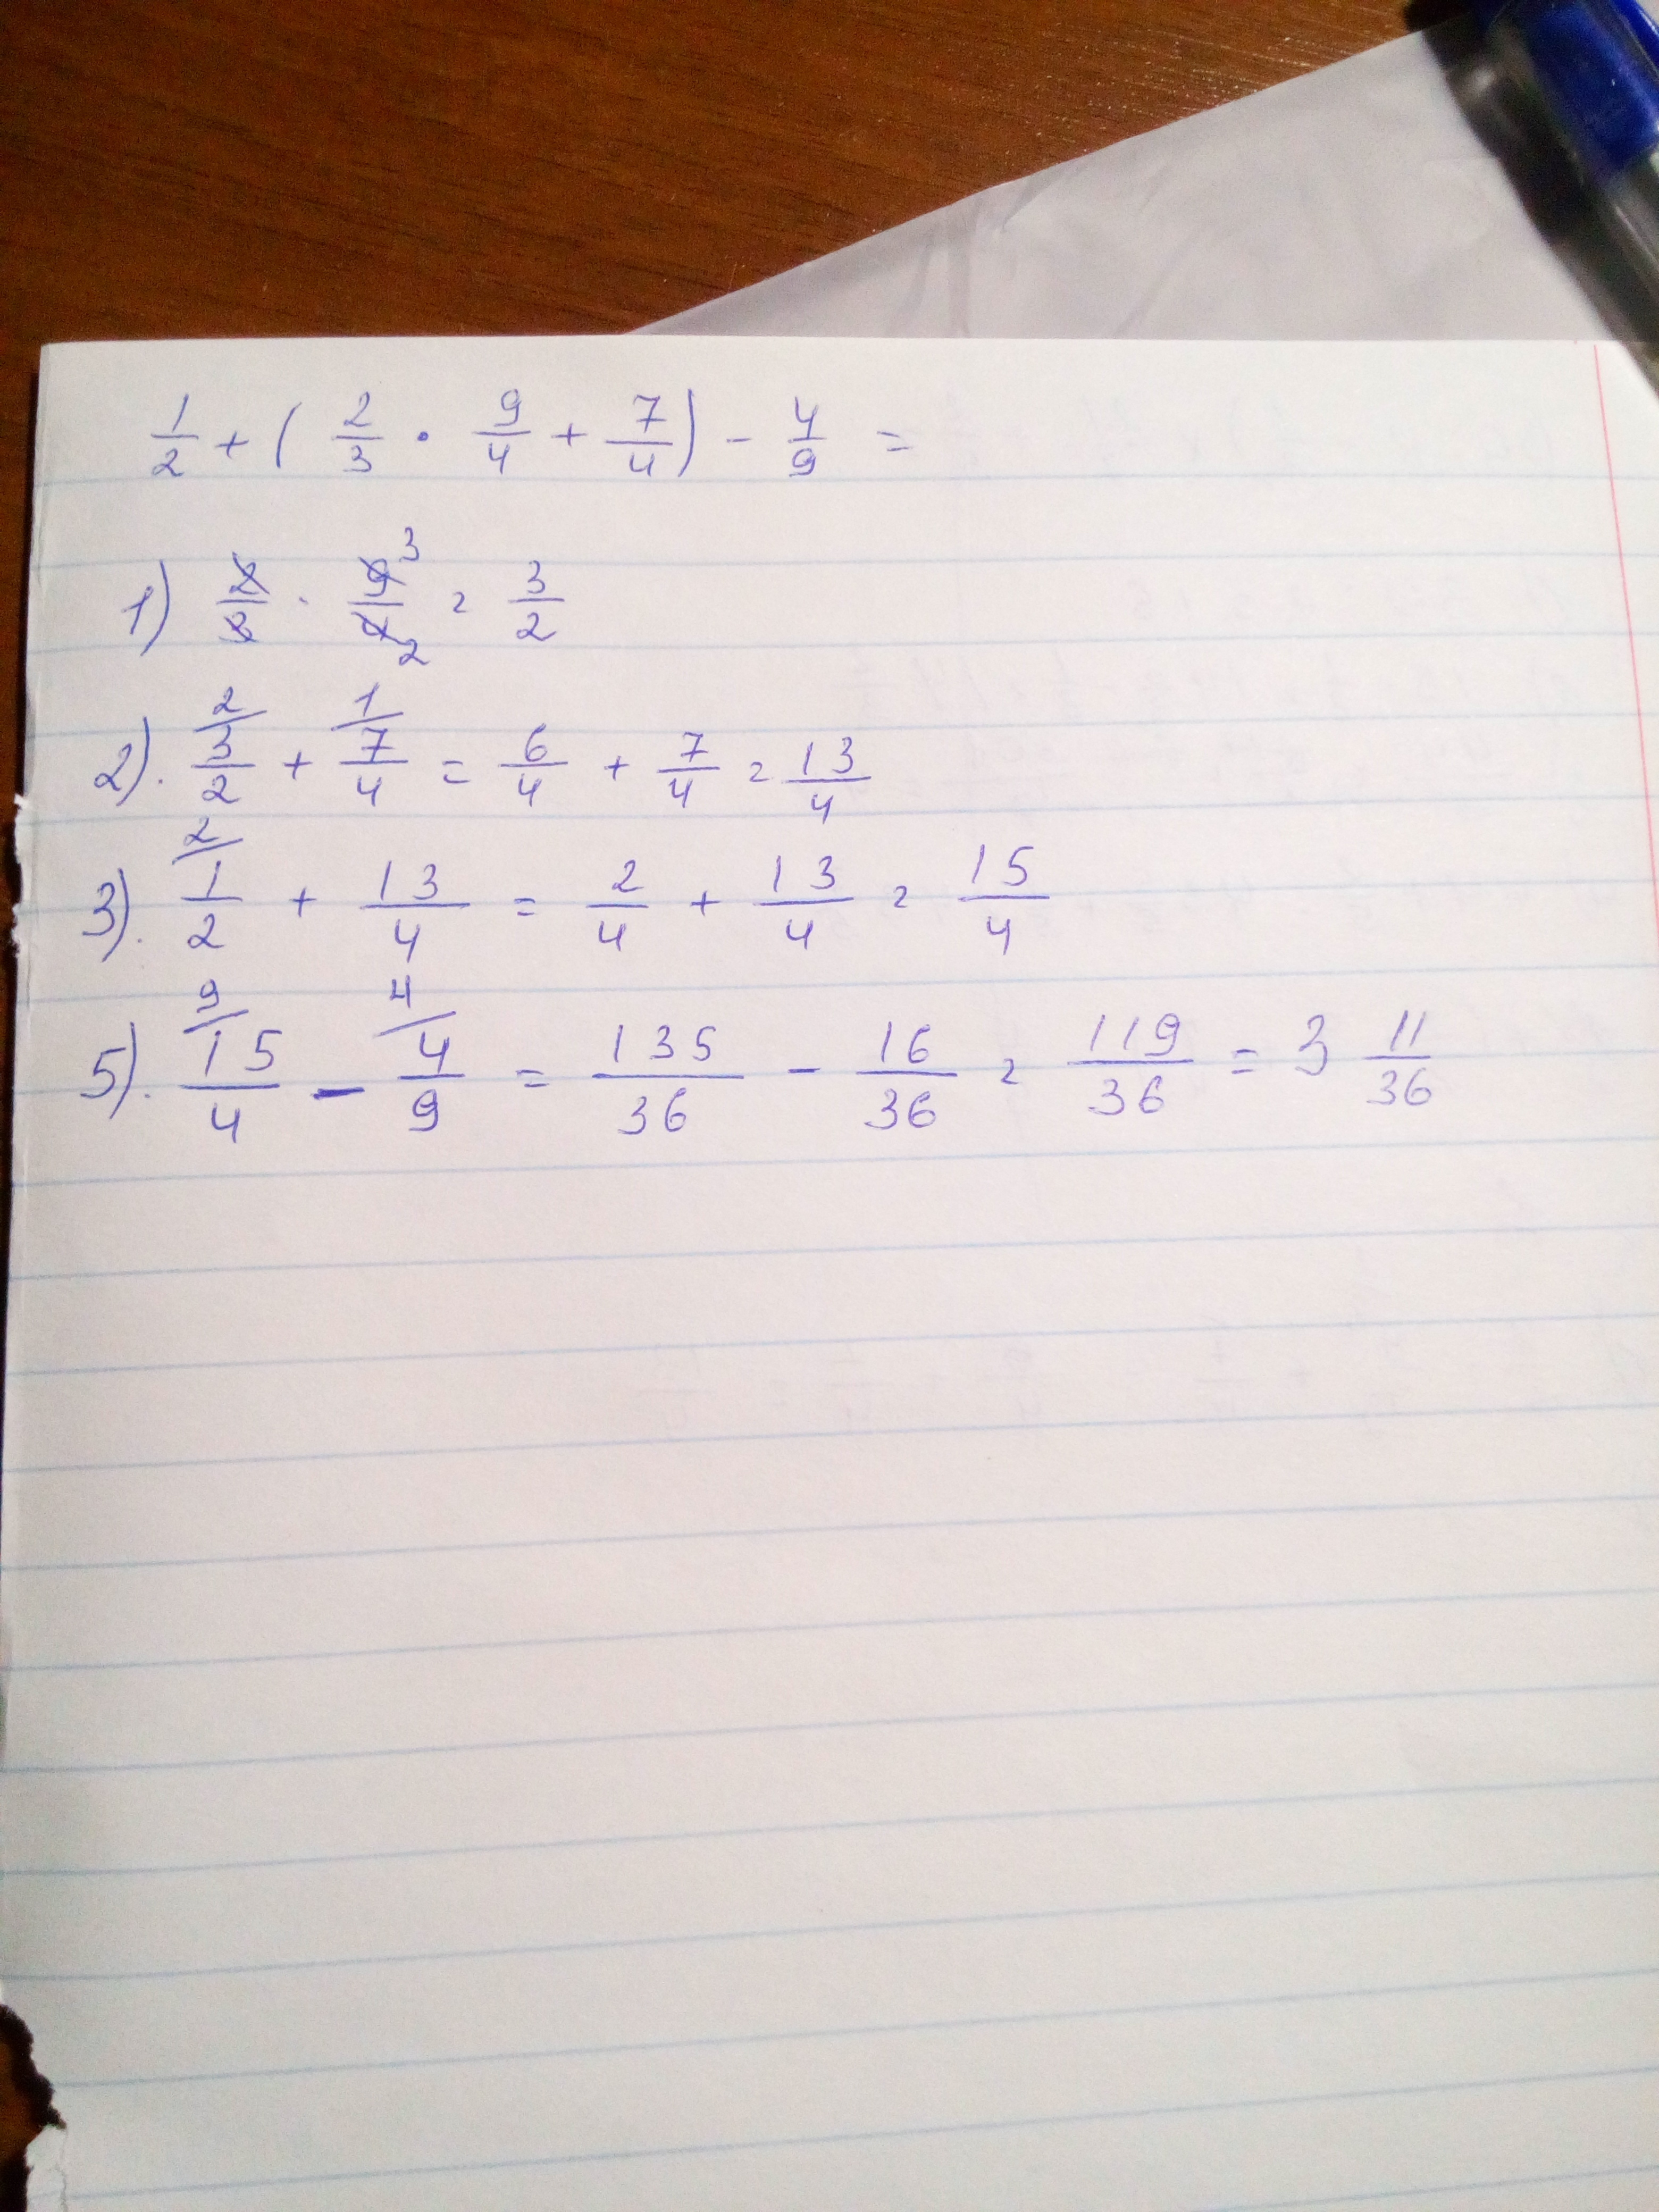 1/2 + ( 2/3 · 9/4 + 7/4 ) - 4/9 =
1) 2/3 · 9/4 = 3/2
2). 3/2 + 7/4 = 6/4 + 7/4 = 13/4
3). 1/2 + 13/4 = 2/4 + 13/4 = 15/4
5). 15/4 - 4/9 = 135/36 - 16/36 = 119/36 = 3 11/36